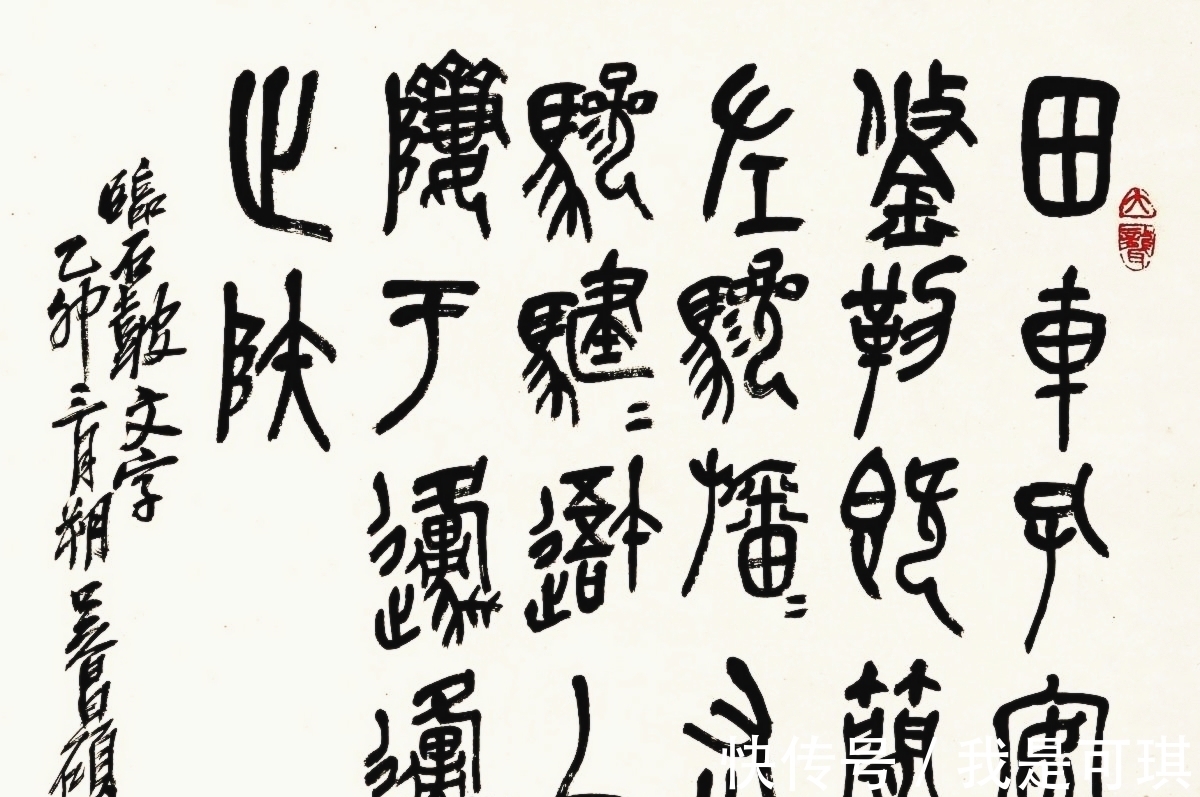 大聾
田車孔安
鋚勒既簡
左驂旛〻右
驂騝〻䢸
隮于邍邍
止陕
臨石鼓文字
乙卯三月朔吴昌碩
快传号/我是可琪